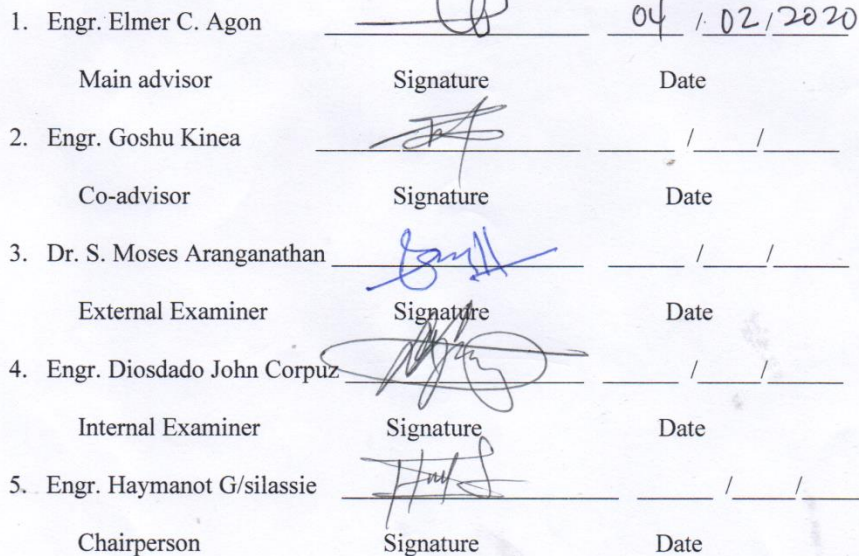 1. Engr. Elmer C. Agon 04 / 02 / 2020
Main advisor Signature Date
2. Engr. Goshu Kinea / /
Co-advisor Signature Date
3. Dr. S. Moses Aranganathan / /
External Examiner Signature Date
4. Engr. Diosdado John Corpuz / /
Internal Examiner Signature Date
5. Engr. Haymanot G/silassie / /
Chairperson Signature Date